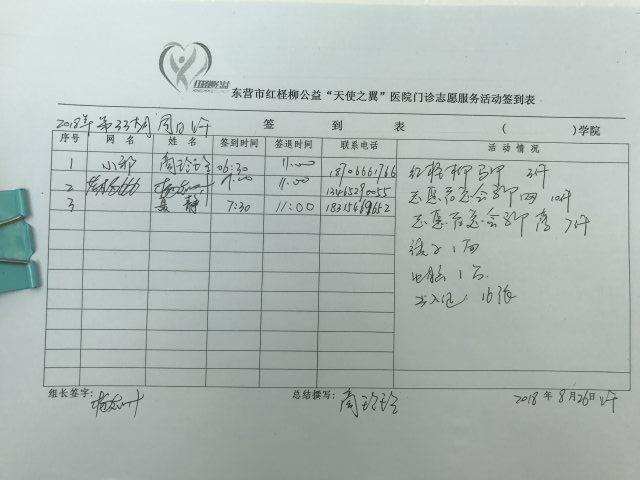 东营市红柽柳公益“天使之翼”医院门诊志愿服务活动签到表
2018年 第33期 周日 上午 签 到 表 ( )学院
序号 网名 姓名 签到时间 签退时间 联系电话 活动情况
1 小郑 周玲玲 06:30 11:00 18706661766
红柽柳马甲 3件
2 7:00 11:00 13465290055
志愿者总会马甲 网 10件
3 聂静 7:30 11:00
志愿者总会马甲 薄 7件
镜子1面
电脑1台
出入证 16张
组长签字: 总结撰写: 周玲玲 2018年8月26日 上午